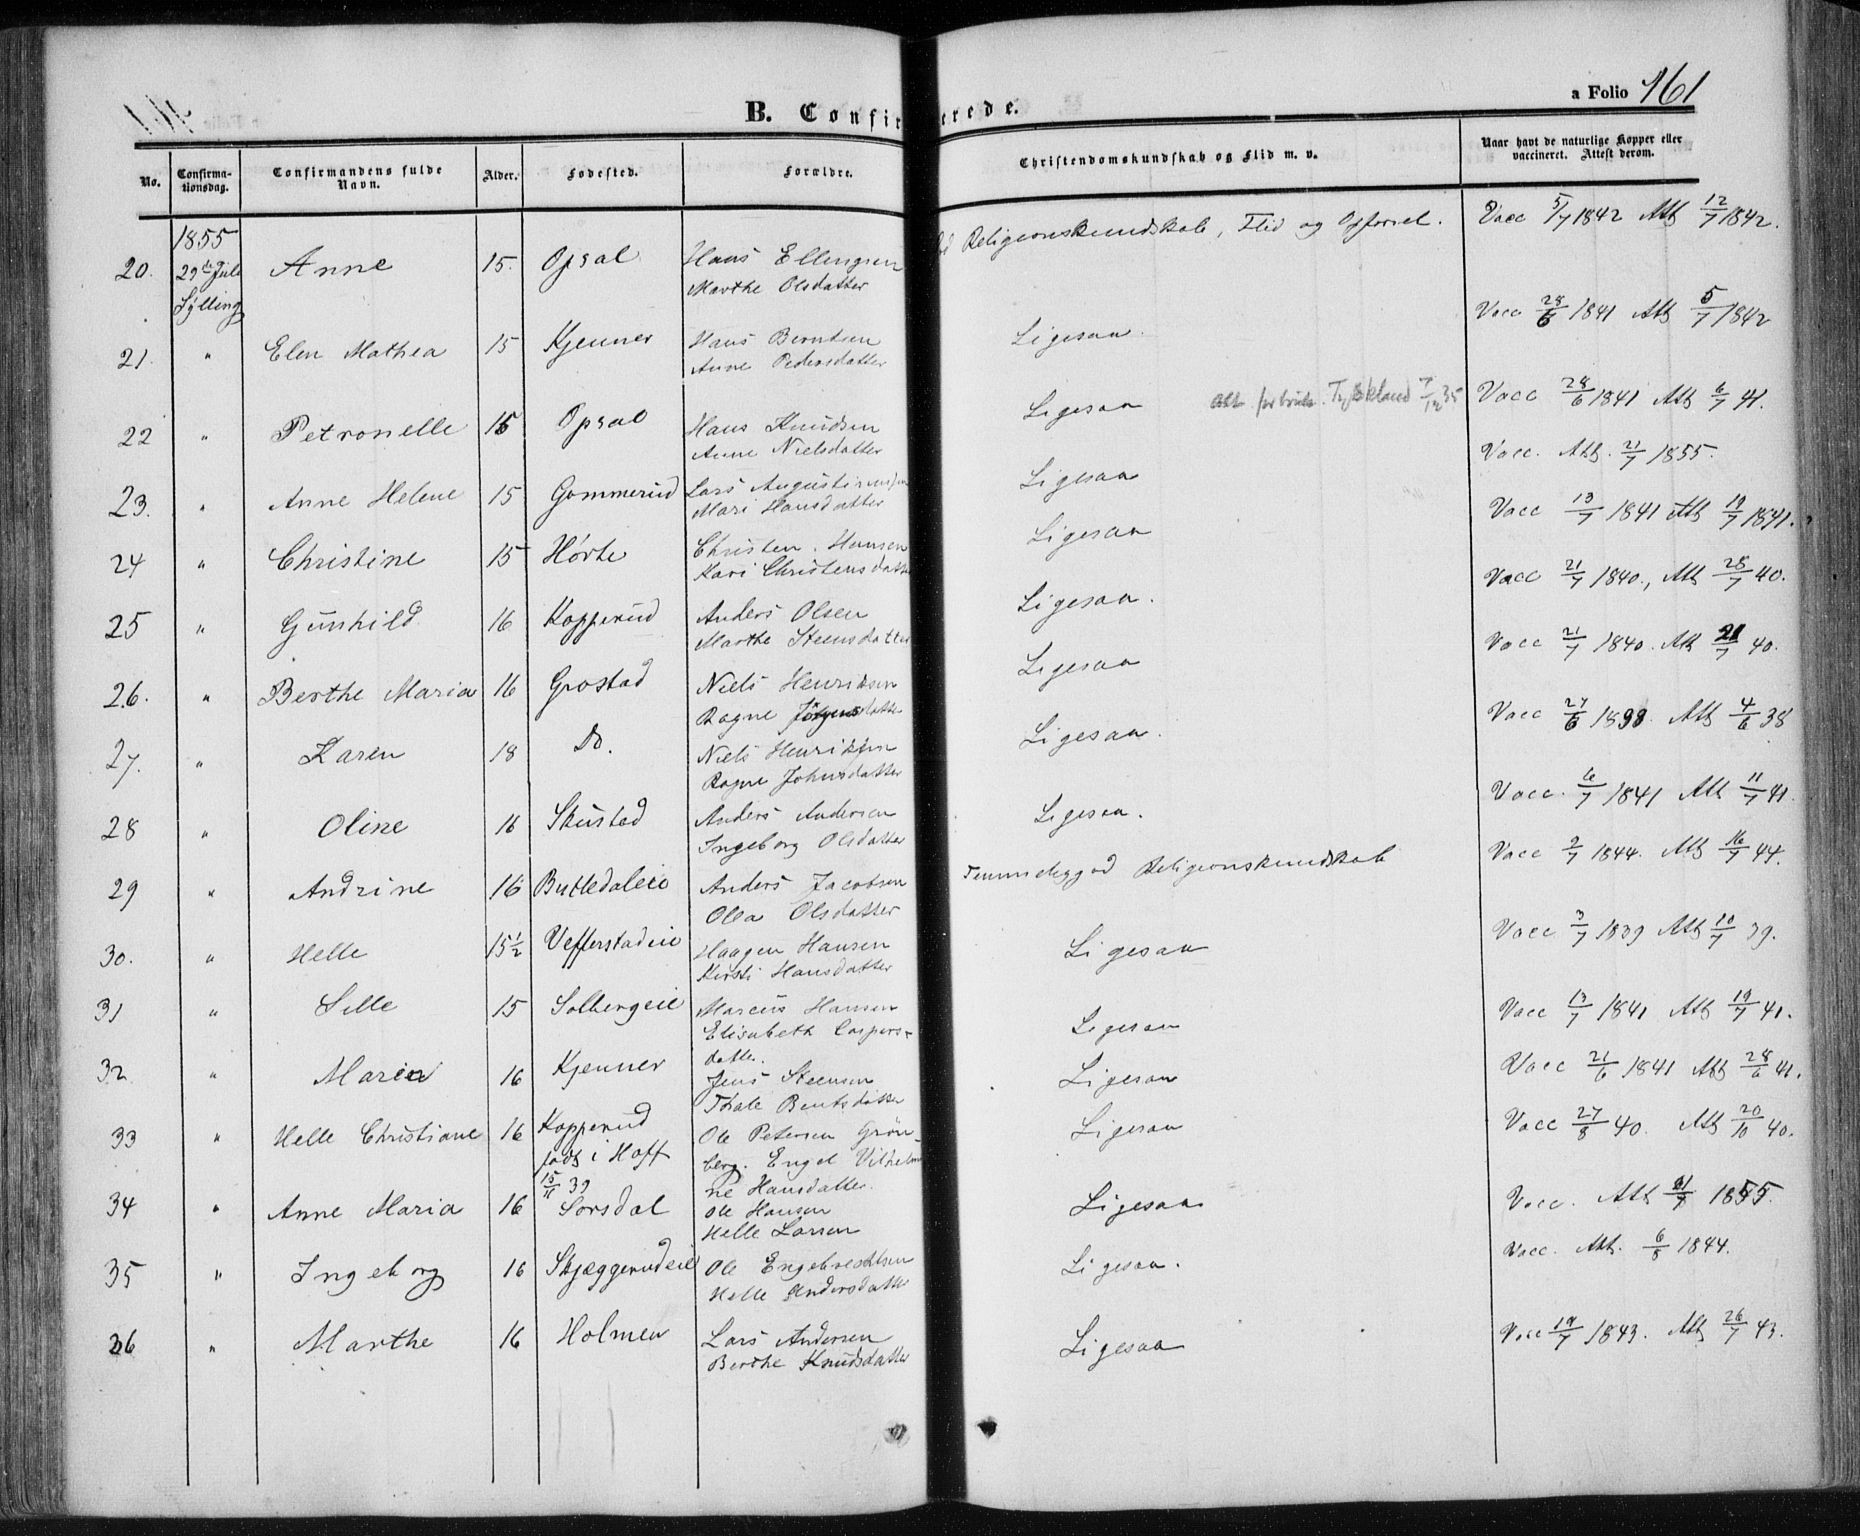 a Folio 161
B. Confirmerede.
No. Confirmationsdag. Confirmandens fulde Navn. Alder. Fødested. Forældre. Christendomskundskab og Flid m. v. Naar havt de naturlige Kopper eller vaccineret. Attest derom.
1855
20. 29de Juli Anne 15. Opsal Hans Ellingsen Religionskundskab, Flid og Opførsel. Vacc 5/7 1842 Att 12/7 1842.
Sylling Marthe Olsdatter
21. " Elen Mathea 15 Kjenner Hans Berntsen Ligesaa. Vacc 28/6 1841 Att 5/7 1842
Anne Pedersdatter
22 " Petronelle 15 Opsal Hans Knudsen Ligesaa Tyskland 7/12 35 Vacc 28/6 1841 Att 6/7 41.
Anne Nielsdatter
23. " Anne Helene 15 Gommerud Lars Augustinusen Ligesaa Vacc. Att. 21/7 1855.
Mari Hansdatter
24 " Christine 15 Hörte Christen Hansen Ligesaa Vacc 13/7 1841 Att 19/7 1841.
Kari Christensdatter
25 " Gunhild 16 Kopperud Anders Olsen Ligesaa. Vacc 21/7 1840, Att 28/7 40.
Marthe Steensdatter
26. " Berthe Maria 16 Grostad Niels Henriksen Ligesaa Vacc 21/7 1840. Att 21/7 40.
Ragne Jörgensdatter
27. " Karen 18 Do. Niels Henriksen Ligesaa. Vacc 27/6 1838 Att 4/6 38
Ragne Johnsdatter
28 " Oline 16 Skustad Anders Andersen Ligesaa. Vacc. 6/7 1841 Att 11/7 41.
Ingeborg Olsdatter
29 " Andrine 16 Butledaleie Anders Jacobsen Temmeliggod Religionskundskab Vacc 2/7 1844. Att 16/7 44.
Olea Olsdatter
30. " Helle 15½ Vefferstadeie Haagen Hansen Ligesaa Vacc 3/7 1839 Att 10/7 39.
Kirsti Hansdatter
31 " Sille 15 Solbergeie Marcus Hansen Ligesaa Vacc 13/7 1841 Att 19/7 41.
Elisabeth Caspers-
datter.
32 " Maria 16 Kjenner Jens Steensen Ligesaa Vacc 21/6 1841 Att 28/6 41.
Thale Bentsdatter
33 " Helle Christiane 16 Kopperud Ole Petersen Grön- Ligesaa Vacc 27/8 40. Att 20/10 40.
födt i Hoff berg. Engel Vilhelmi
15/11 39 ne Hansdatter.
34 " Anne Maria 16 Sørsdal Ole Hansen Ligesaa Vacc. Att 21/7 1855.
Helle Larsen
35 " Ingeborg 16 Skjæggerudeie Ole Engebrechtsen Ligesaa. Vacc. Att. 6/8 1844.
Helle Andersdatter
36 " Marthe 16 Holmen Lars Andersen Ligesaa Vacc 19/7 1843. Att 26/7 43.
Berthe Knudsdatter